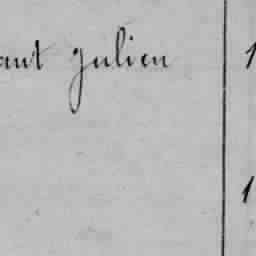 ant Julien 1
1